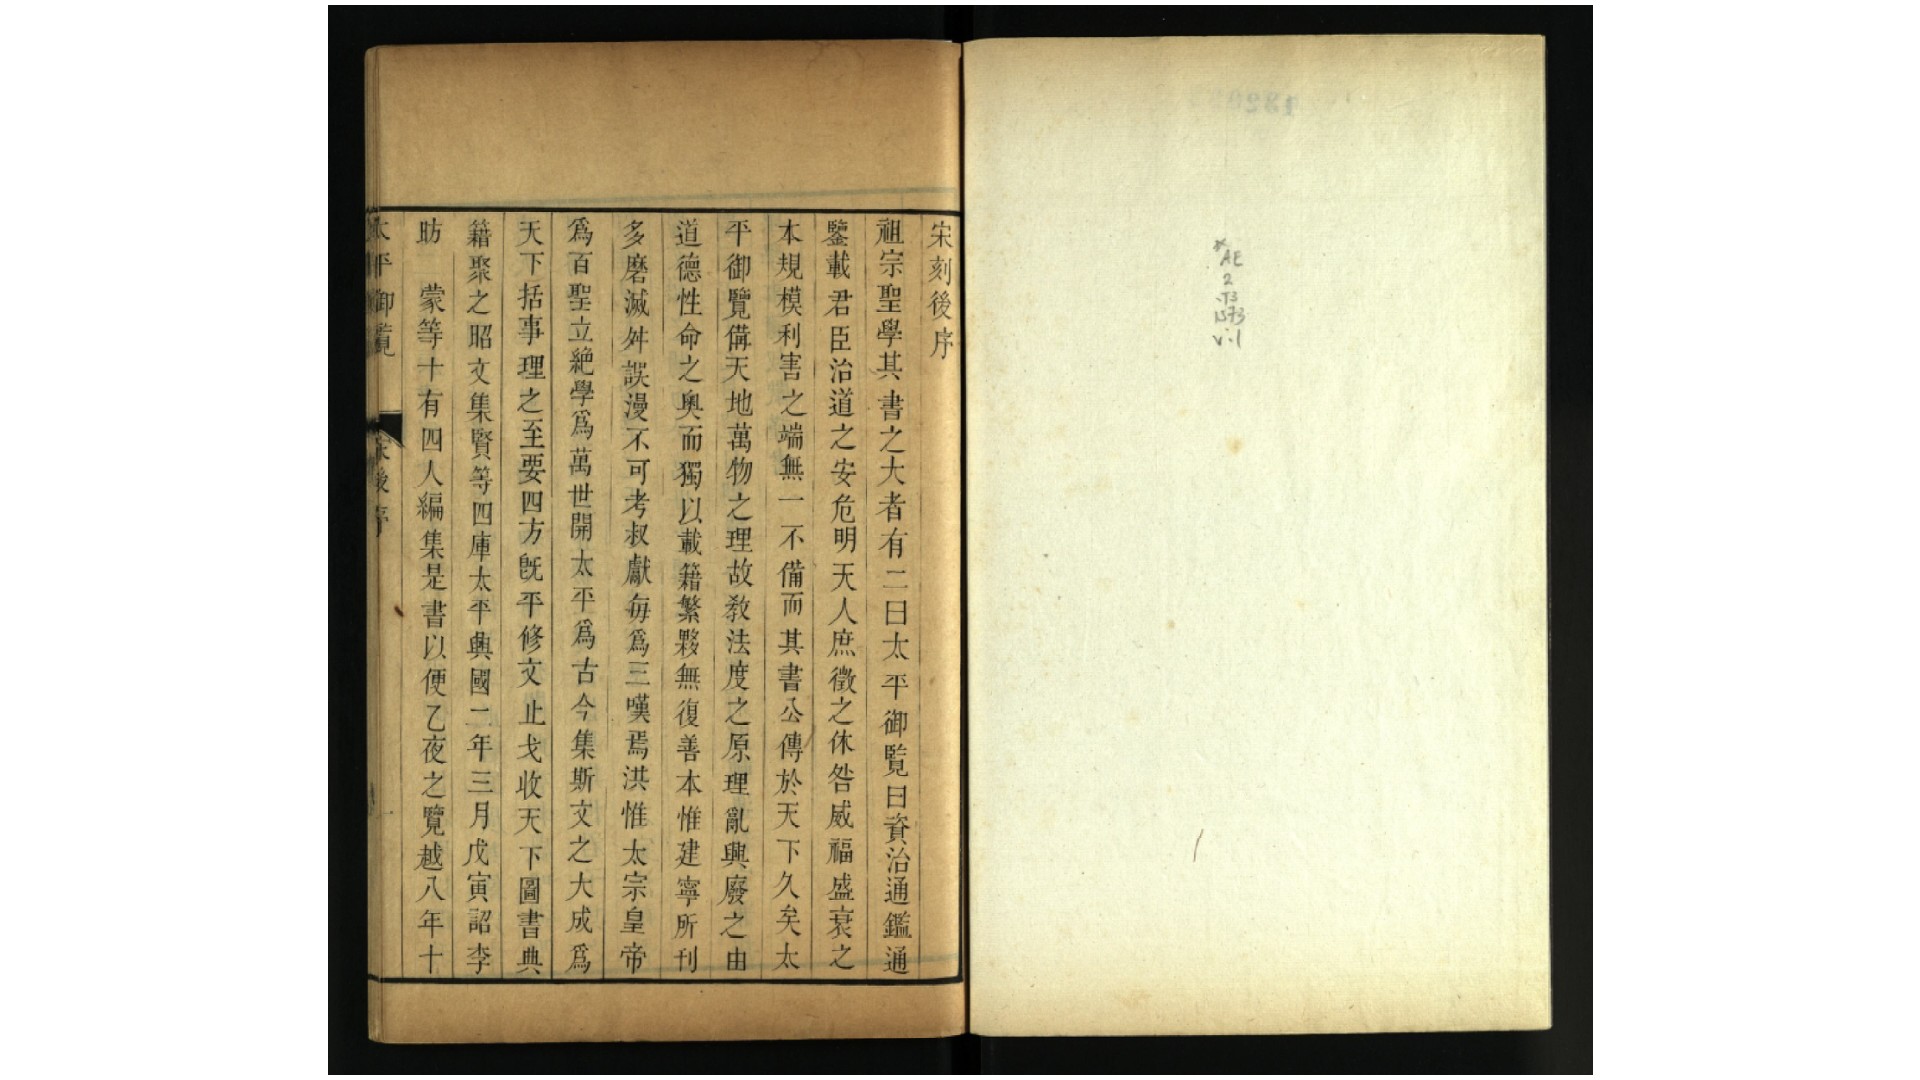 宋刻後序
祖宗聖學其書之大者有二曰太平御覽曰資治通鑑通
鑒載君臣治道之安危明天人庶徵之休咎威福盛衰之
本規模利害之端無一不備而其書公傳於天下久矣太
平御覽備天地萬物之理故教法度之原理亂興廢之由
道德性命之奧而獨以載籍繁夥無復善本惟建寧所刊
多磨滅舛誤漫不可考叔獻每爲三嘆焉洪惟太宗皇帝
爲百聖立絕學爲萬世開太平爲古今集斯文之大成爲
天下括事理之至要四方旣平修文止戈收天下圖書典
籍聚之昭文集賢等四庫太平興國二年三月戊寅詔李
昉　蒙等十有四人編集是書以便乙夜之覽越八年十
太平御覽
宋後序
一
AE
2
.T3
1573
v.1